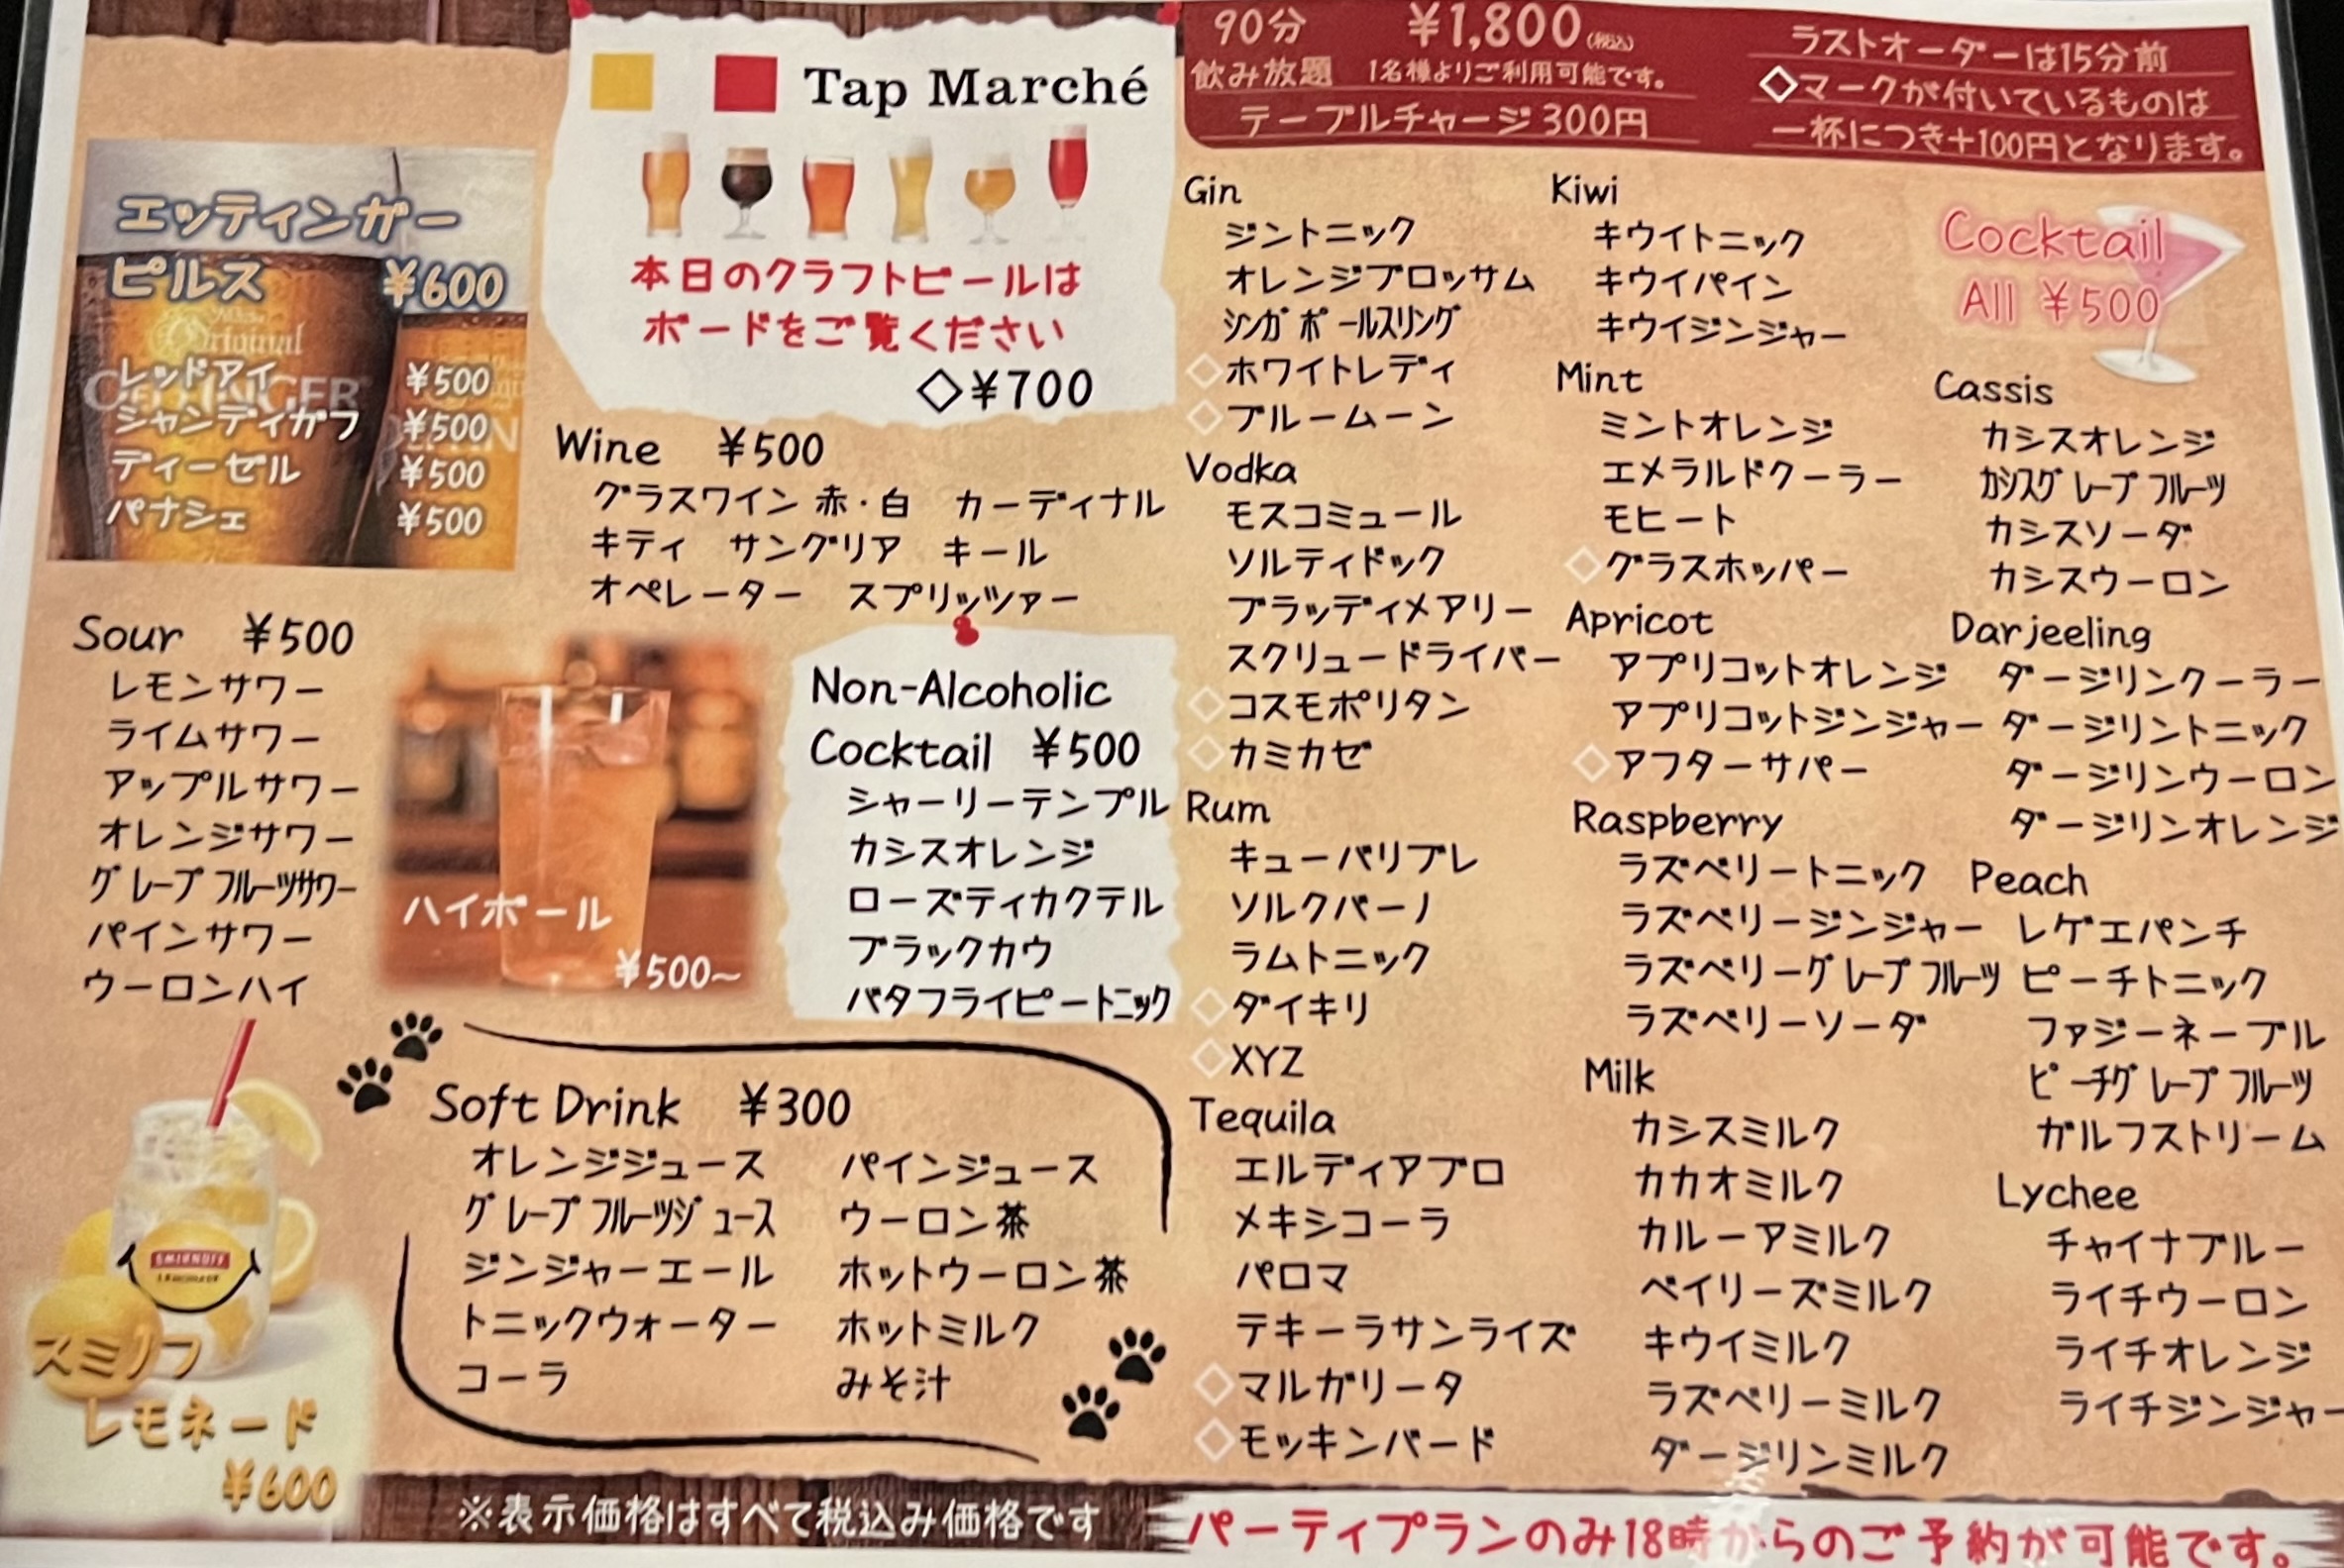 エッティンガー
ピルス ¥600
レッドアイ ¥500
シャンディガフ ¥500
ディーゼル ¥500
パナシェ ¥500
Tap Marché
本日のクラフトビールは
ボードをご覧ください
◇¥700
Wine ¥500
グラスワイン 赤・白 カーディナル
キティ サングリア キール
オペレーター スプリッツァー
Sour ¥500
レモンサワー
ライムサワー
アップルサワー
オレンジサワー
グレープフルーツサワー
パインサワー
ウーロンハイ
ハイボール
¥500~
Non-Alcoholic
Cocktail ¥500
シャーリーテンプル
カシスオレンジ
ローズティカクテル
ブラックカウ
バタフライピートニック
SMIRNOFF
スミノフ
レモネード
¥600
Soft Drink ¥300
オレンジジュース
グレープフルーツジュース
ジンジャーエール
トニックウォーター
コーラ
パインジュース
ウーロン茶
ホットウーロン茶
ホットミルク
みそ汁
※表示価格はすべて税込み価格です
90分 ¥1,800(税込)
飲み放題 1名様よりご利用可能です。
テーブルチャージ 300円
ラストオーダーは15分前
◇マークが付いているものは
一杯につき+100円となります。
Gin
ジントニック
オレンジブロッサム
シンガポールスリング
◇ホワイトレディ
◇ブルームーン
Vodka
モスコミュール
ソルティドック
ブラッディメアリー
スクリュードライバー
◇コスモポリタン
◇カミカゼ
Rum
キューバリブレ
ソルクバーノ
ラムトニック
◇ダイキリ
◇XYZ
Tequila
エルディアブロ
メキシコーラ
パロマ
テキーラサンライズ
◇マルガリータ
◇モッキンバード
Kiwi
キウイトニック
キウイパイン
キウイジンジャー
Mint
ミントオレンジ
エメラルドクーラー
モヒート
◇グラスホッパー
Apricot
アプリコットオレンジ
アプリコットジンジャー
◇アフターサパー
Raspberry
ラズベリートニック
ラズベリージンジャー
ラズベリーグレープフルーツ
ラズベリーソーダ
Milk
カシスミルク
カカオミルク
カルーアミルク
ベイリーズミルク
キウイミルク
ラズベリーミルク
ダージリンミルク
Cocktail
All ¥500
Cassis
カシスオレンジ
カシスグレープフルーツ
カシスソーダ
カシスウーロン
Darjeeling
ダージリンクーラー
ダージリントニック
ダージリンウーロン
ダージリンオレンジ
Peach
レゲエパンチ
ピーチトニック
ファジーネーブル
ピーチグレープフルーツ
ガルフストリーム
Lychee
チャイナブルー
ライチウーロン
ライチオレンジ
ライチジンジャー
パーティプランのみ18時からのご予約が可能です。